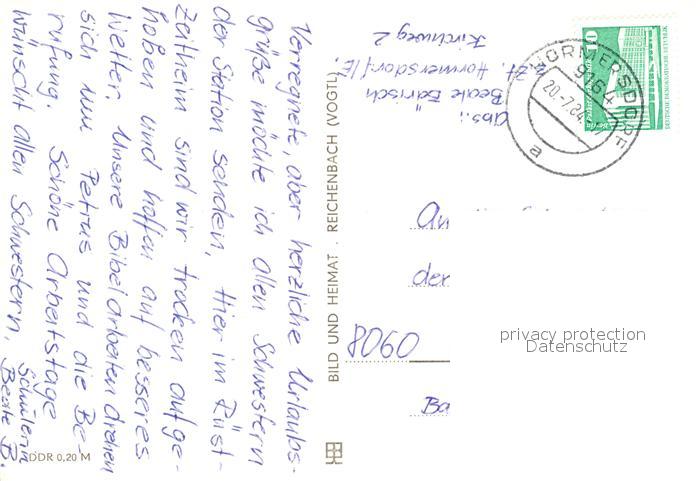 Verregnete, aber herzliche Urlaubs-
grüße möchte ich allen Schwestern
der Station senden. Hier im Rüst-
zeitheim sind wir trocken aufge-
hoben und hoffen auf besseres
Wetter. Unsere Bibelarbeiten drehen
sich um Petrus und die Be-
rufung. Schöne Arbeitstage
wünscht allen Schwestern,
Schülerin
Beate B.
DDR 0,20 M
BILD UND HEIMAT . REICHENBACH (VOGTL)
Abs.:
Beate
z.Zt. Hormersdorf/E.
Kirchweg 2
HORMERSDORF
9164
20.-7.84.
a
10
DEUTSCHE DEMOKRATISCHE REPUBLIK
An
der
8060
Ba
privacy protection
Datenschutz